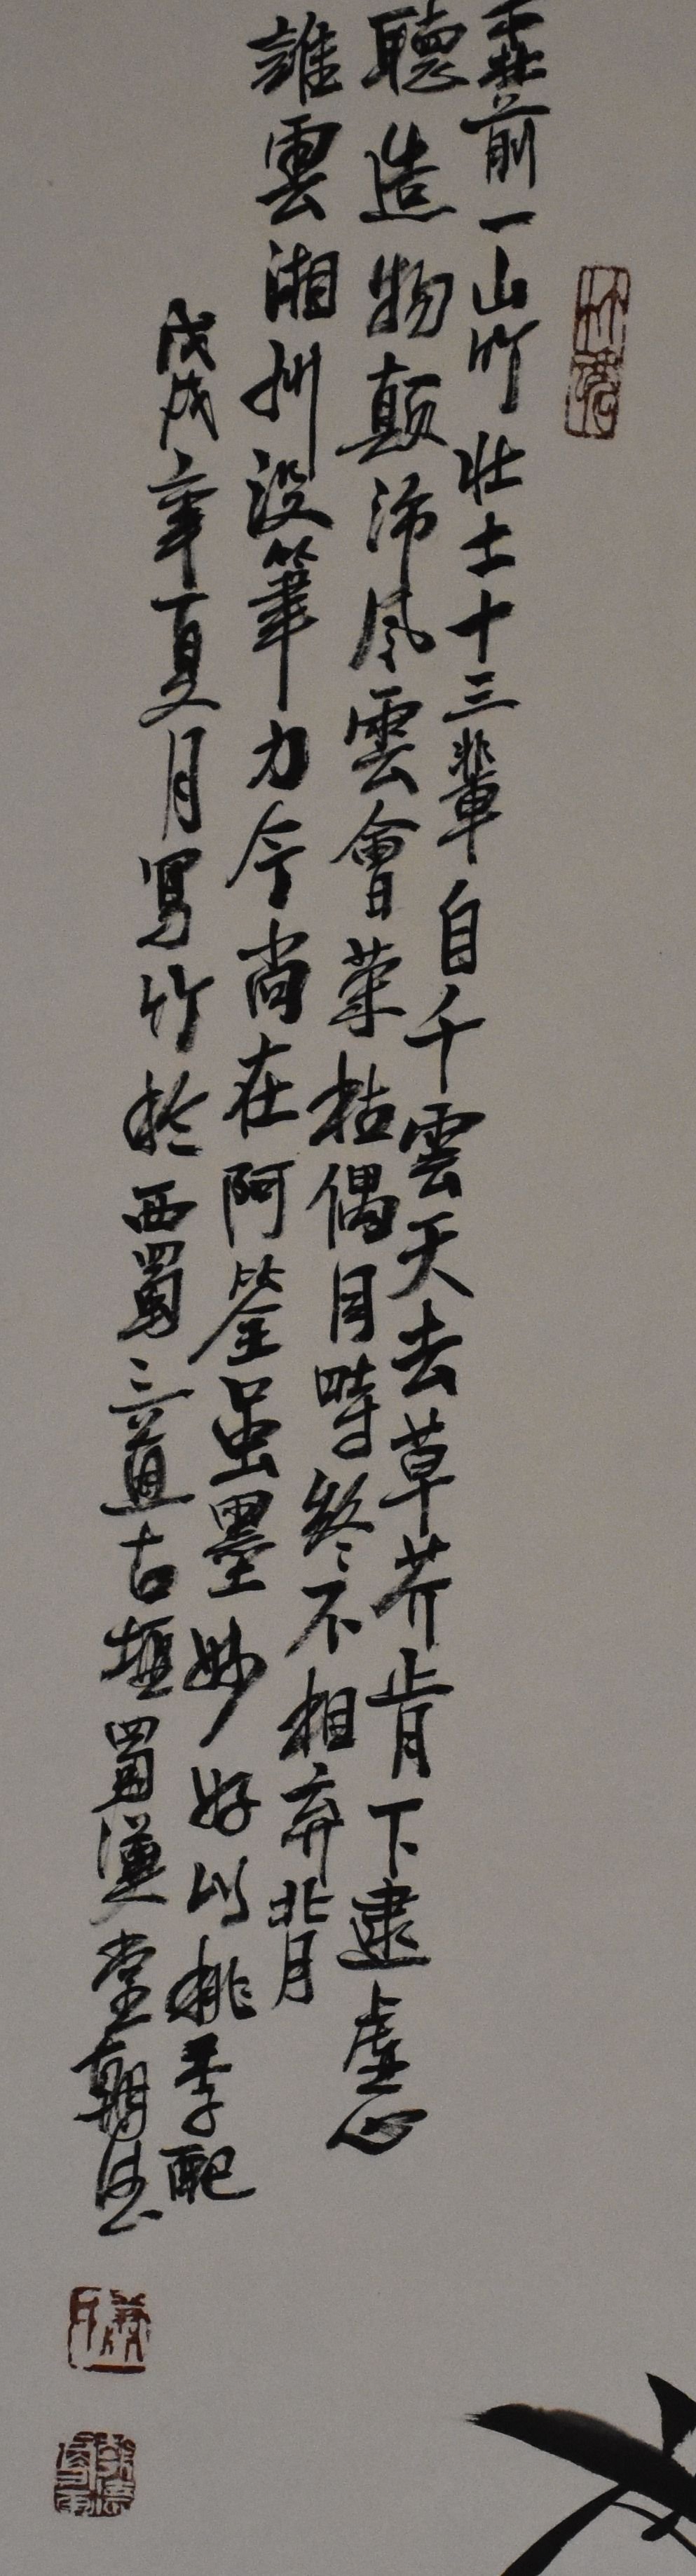 靈前一山竹壮士十三輩自千雲天去草芥肯下逮虚心
聽造物颠沛風雲會荣枯偶同時終不相弃背
誰雲湘州没筆力今尚在阿筌虽墨妙好以桃李配
戊戌年夏月写竹於西蜀三道古堰蜀漢堂朝